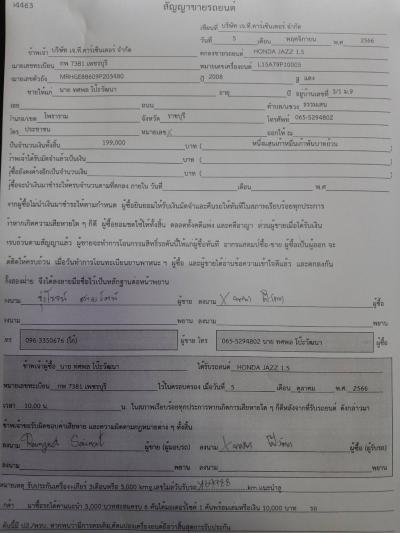 4463
สัญญาขายรถยนต์
เขียนที่ บริษัท เจ.ที.คาร์เซ็นเตอร์ จำกัด
วันที่ 5 เดือน พฤศจิกายน พ.ศ. 2566
ข้าพเจ้า บริษัท เจ.ที.คาร์เซ็นเตอร์ จำกัด ตกลงขายรถยนต์ HONDA JAZZ 1.5
หมายเลขทะเบียน กพ 7381 เพชรบุรี หมายเลขเครื่องยนต์ L15A79P10003
หมายเลขตัวถัง MRHGE88609P203480 ปี 2008 สี แดง
ขายให้แก่ นาย ทศพล โป๊ะวัฒนา อายุ ปี อยู่บ้านเลขที่ 3/1 ม.9
ซอย ถนน ตำบล/แขวง ธรรมเสน
อำเภอ/เขต โพธาราม จังหวัด ราชบุรี โทรศัพท์ 065-5294802
บัตร ประชาชน หมายเลข ออกให้ ณ
เป็นจำนวนเงินทั้งสิ้น 199,000 บาท ( หนึ่งแสนเก้าหมื่นเก้าพันบาทถ้วน
ข้าพเจ้าได้รับมัดจำแล้วเป็นเงิน บาท (
ผู้ซื้อยังคงค้างอีกเป็นจำนวนเงิน บาท (
ผู้ซื้อจะนำเงินมาชำระให้ครบจำนวนตามที่ตกลง ภายใน วันที่ เดือน พ.ศ.
จากผู้ซื้อไม่นำเงินมาชำระให้ตามกำหนด ผู้ซื้อยินยอมให้ริบเงินมัดจำและคืนรถให้ทันทีในสภาพเรียบร้อยทุกประการ
ถ้าหากเกิดความเสียหายใด ๆ ก็ดี ผู้ซื้อยอมชดใช้ให้ทั้งสิ้น ตลอดทั้งคดีแพ่ง และคดีอาญา ส่วนผู้ขายเมื่อได้รับเงิน
ครบถ้วนตามสัญญาแล้ว ผู้ขายจะทำการโอนกรรมสิทธิ์รถคันนี้ให้แก่ผู้ซื้อทันที ผู้ซื้อเป็นผู้ออก จะ
เมื่อวันทำการโอนทะเบียนยานพาหนะ ฯ ผู้ซื้อ และผู้ขายได้อ่านข้อความเข้าใจดีแล้ว และตกลงกัน
ทั้งสองฝ่าย จึงได้ลงลายมือชื่อไว้เป็นหลักฐานต่อหน้าพยาน
ลงนาม ผู้ขาย ลงนาม ผู้ซื้อ
ลงนาม พยาน ลงนาม พยาน
โทร 096-3350676 (โก้) ผู้ขาย โทร 065-5294802 นาย ทศพล โป๊ะวัฒนา ผู้ซื้อ
ข้าพเจ้าผู้ซื้อ นาย ทศพล โป๊ะวัฒนา ได้รับรถยนต์ HONDA JAZZ 1.5
หมายเลขทะเบียน กพ 7381 เพชรบุรี ไว้ในครอบครอง เมื่อวันที่ 5 เดือน ตุลาคม พ.ศ. 2566
เวลา 10.00 น. น. ในสภาพเรียบร้อยทุกประการหากเกิดการเสียหายใด ๆ ก็ดีหลังจากที่รับรถยนต์ ดังกล่าวมา
ข้าพเจ้าขอรับผิดชอบค่าเสียหาย และความผิดตามกฎหมายต่าง ๆ ทั้งสิ้น
ลงนาม ผู้ขาย (ผู้มอบรถ) ลงนาม ผู้ซื้อ (ผู้รับรถ)
ลงนาม พยาน ลงนาม พยาน
หมายเหตุ รับประกันเครื่อง+เกียร์ 3เดือนหรือ 5,000 km เลขไมล์วันรับรถ km.แนะนำลู
กค้า มาซื้อรถได้ค่าแนะนำ 3,000 บาท 10,000 บาท รถ
คันนี้มี ปภ./พรบ. หากพบว่ามีการดัดแปลงเครื่องยนต์ถือว่าสิ้นสุดการรับประกัน